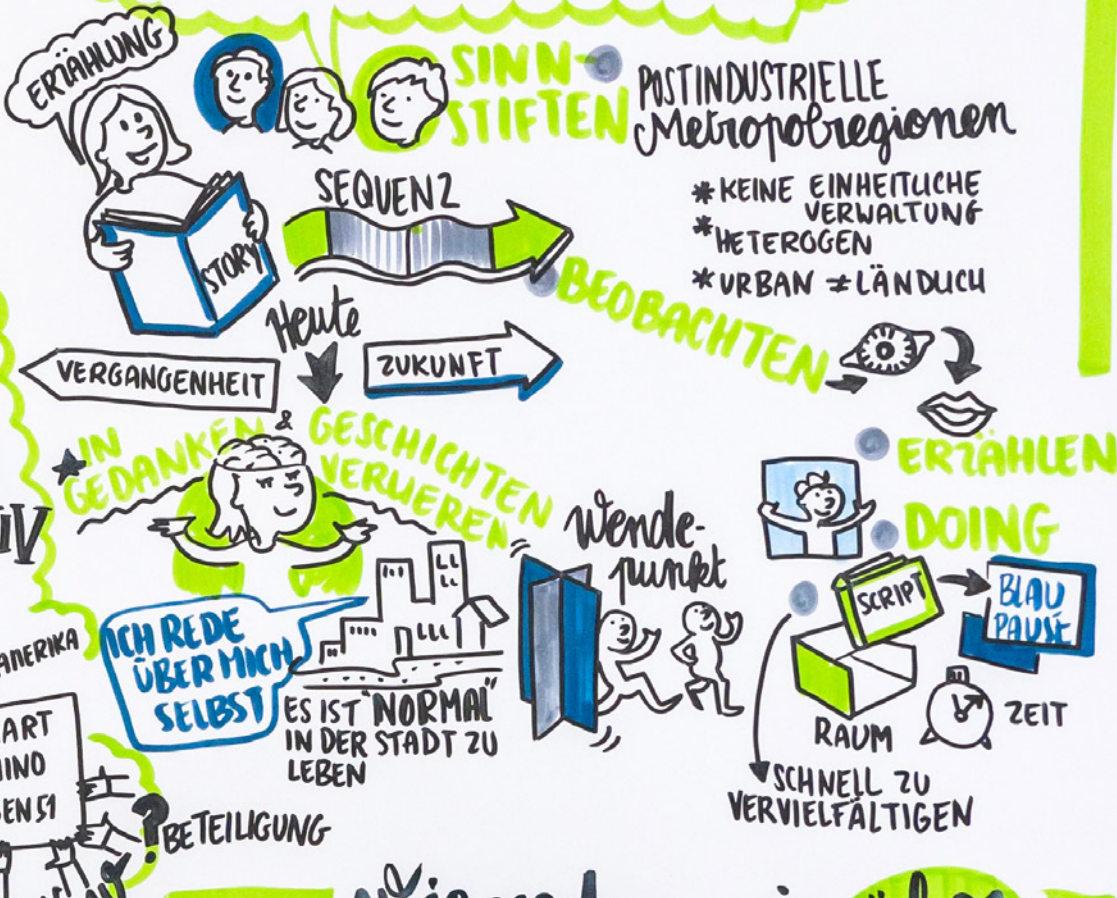 ERZÄHLUNG
STORY
SINN-
STIFTEN
POSTINDUSTRIELLE
Metropolregionen
* KEINE EINHEITLICHE
VERWALTUNG
* HETEROGEN
* URBAN ≠ LÄNDLICH
SEQUENZ
BEOBACHTEN
Heute
VERGANGENHEIT
ZUKUNFT
IN
GEDANKEN & GESCHICHTEN
VERLIEREN
ERZÄHLEN
DOING
Wende-
punkt
SCRIPT
BLAU
PAUSE
RAUM
ZEIT
SCHNELL ZU
VERVIELFÄLTIGEN
ICH REDE
ÜBER MICH
SELBST
ES IST "NORMAL"
IN DER STADT ZU
LEBEN
? BETEILIGUNG